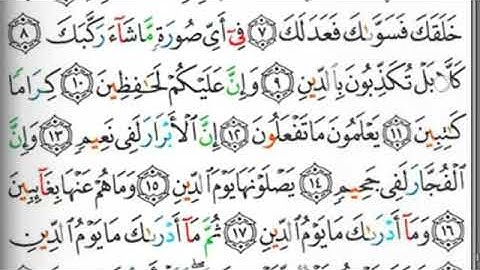 خَلَقَكَ فَسَوَّىٰكَ فَعَدَلَكَ ٧ فِىٓ أَىِّ صُورَةٍ مَّا شَآءَ رَكَّبَكَ ٨
كَلَّا بَلْ تُكَذِّبُونَ بِٱلدِّينِ ٩ وَإِنَّ عَلَيْكُمْ لَحَٰفِظِينَ ١٠ كِرَامًا
كَٰتِبِينَ ١١ يَعْلَمُونَ مَا تَفْعَلُونَ ١٢ إِنَّ ٱلْأَبْرَارَ لَفِى نَعِيمٍ ١٣ وَإِنَّ
ٱلْفُجَّارَ لَفِى جَحِيمٍ ١٤ يَصْلَوْنَهَا يَوْمَ ٱلدِّينِ ١٥ وَمَا هُمْ عَنْهَا بِغَآئِبِينَ
١٦ وَمَآ أَدْرَىٰكَ مَا يَوْمُ ٱلدِّينِ ١٧ ثُمَّ مَآ أَدْرَىٰكَ مَا يَوْمُ ٱلدِّينِ